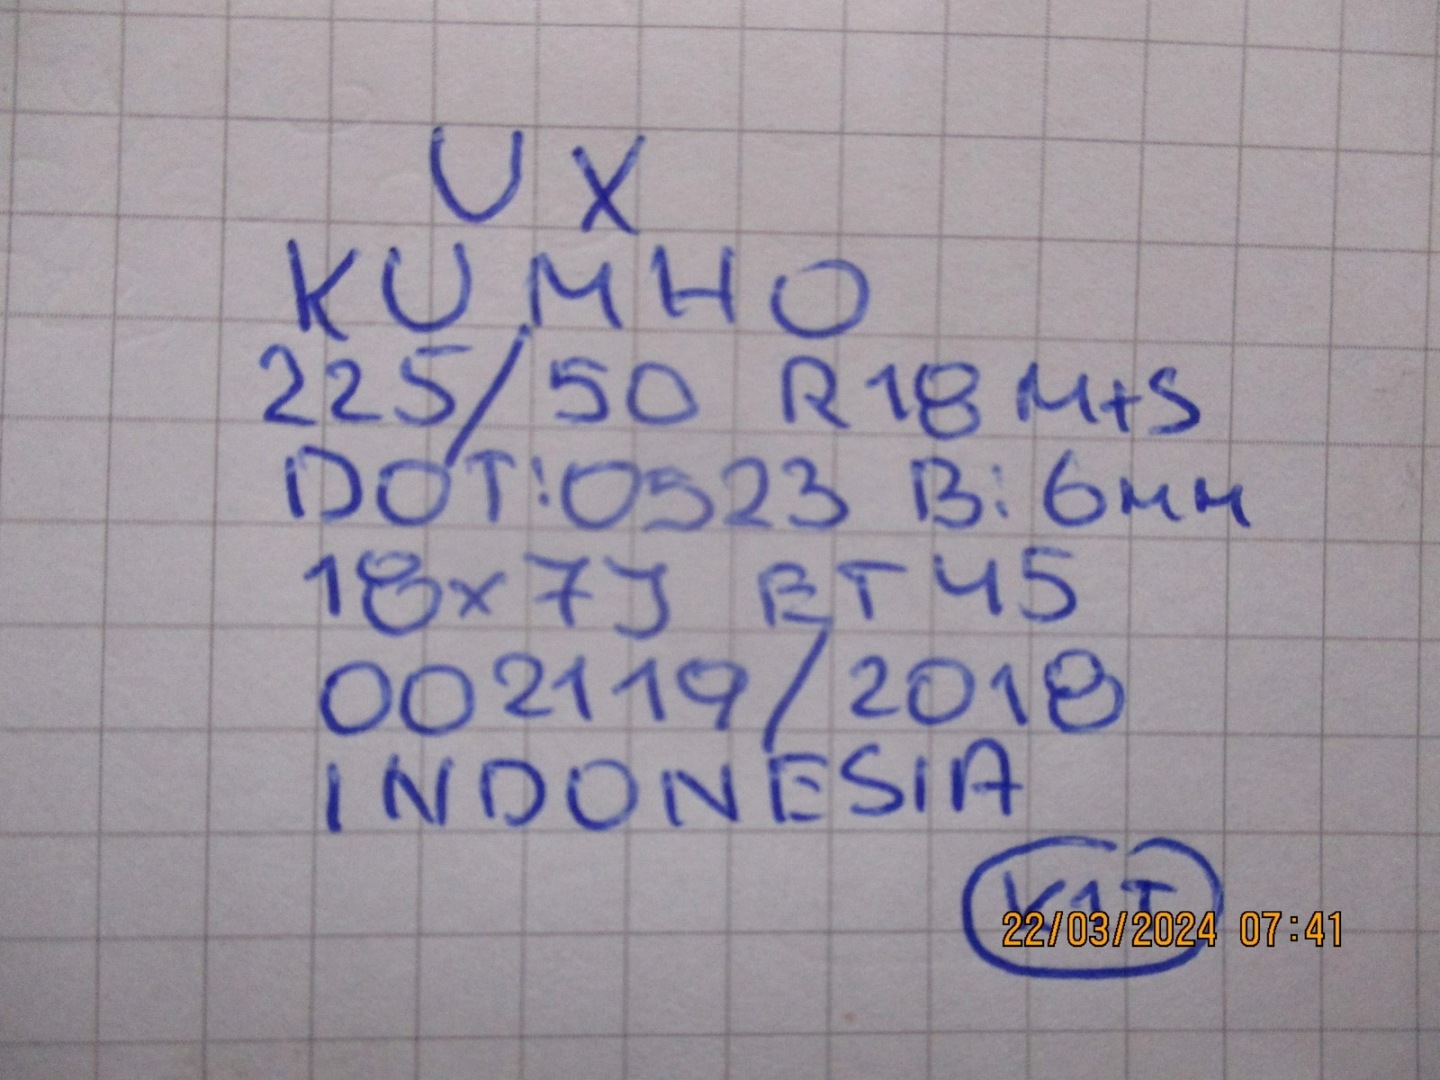 UX
KUMHO
225/50 R18 M+S
DOT:0523 B: 6mm
18x7J ET45
002119/2018
INDONESIA
K1T
22/03/2024 07:41